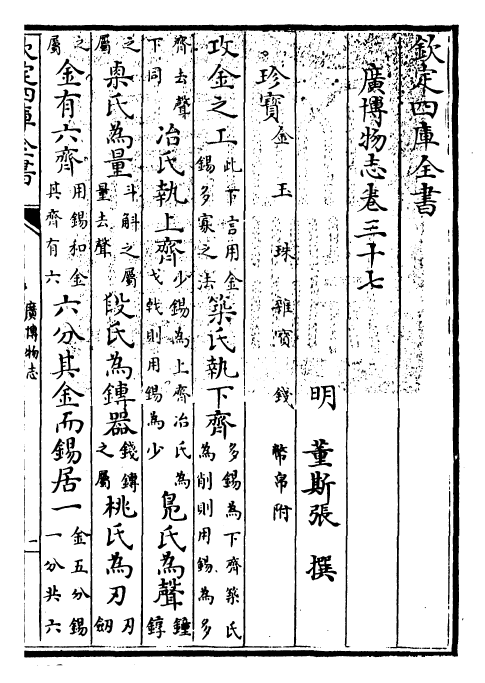 欽定四庫全書
廣博物志卷三十七
明 董斯張 撰
珍寶 金 玉 珠 雜寶 錢 幣帛附
攻金之工 此下言用金錫多寡之法 築氏執下齊 多錫為下齊築氏為削則用錫為多
齊去聲下同 冶氏執上齊 少錫為上齊冶氏為戈戟則用錫為少 鳧氏為聲 鐘錞
之屬 㮚氏為量 斗斛之屬量去聲 段氏為鎛器 錢鎛之屬 桃氏為刃 刃劒
之屬 金有六齊 用錫和金其齊有六 六分其金而錫居一 金五分錫一分共六
欽定四庫全書
廣博物志
一